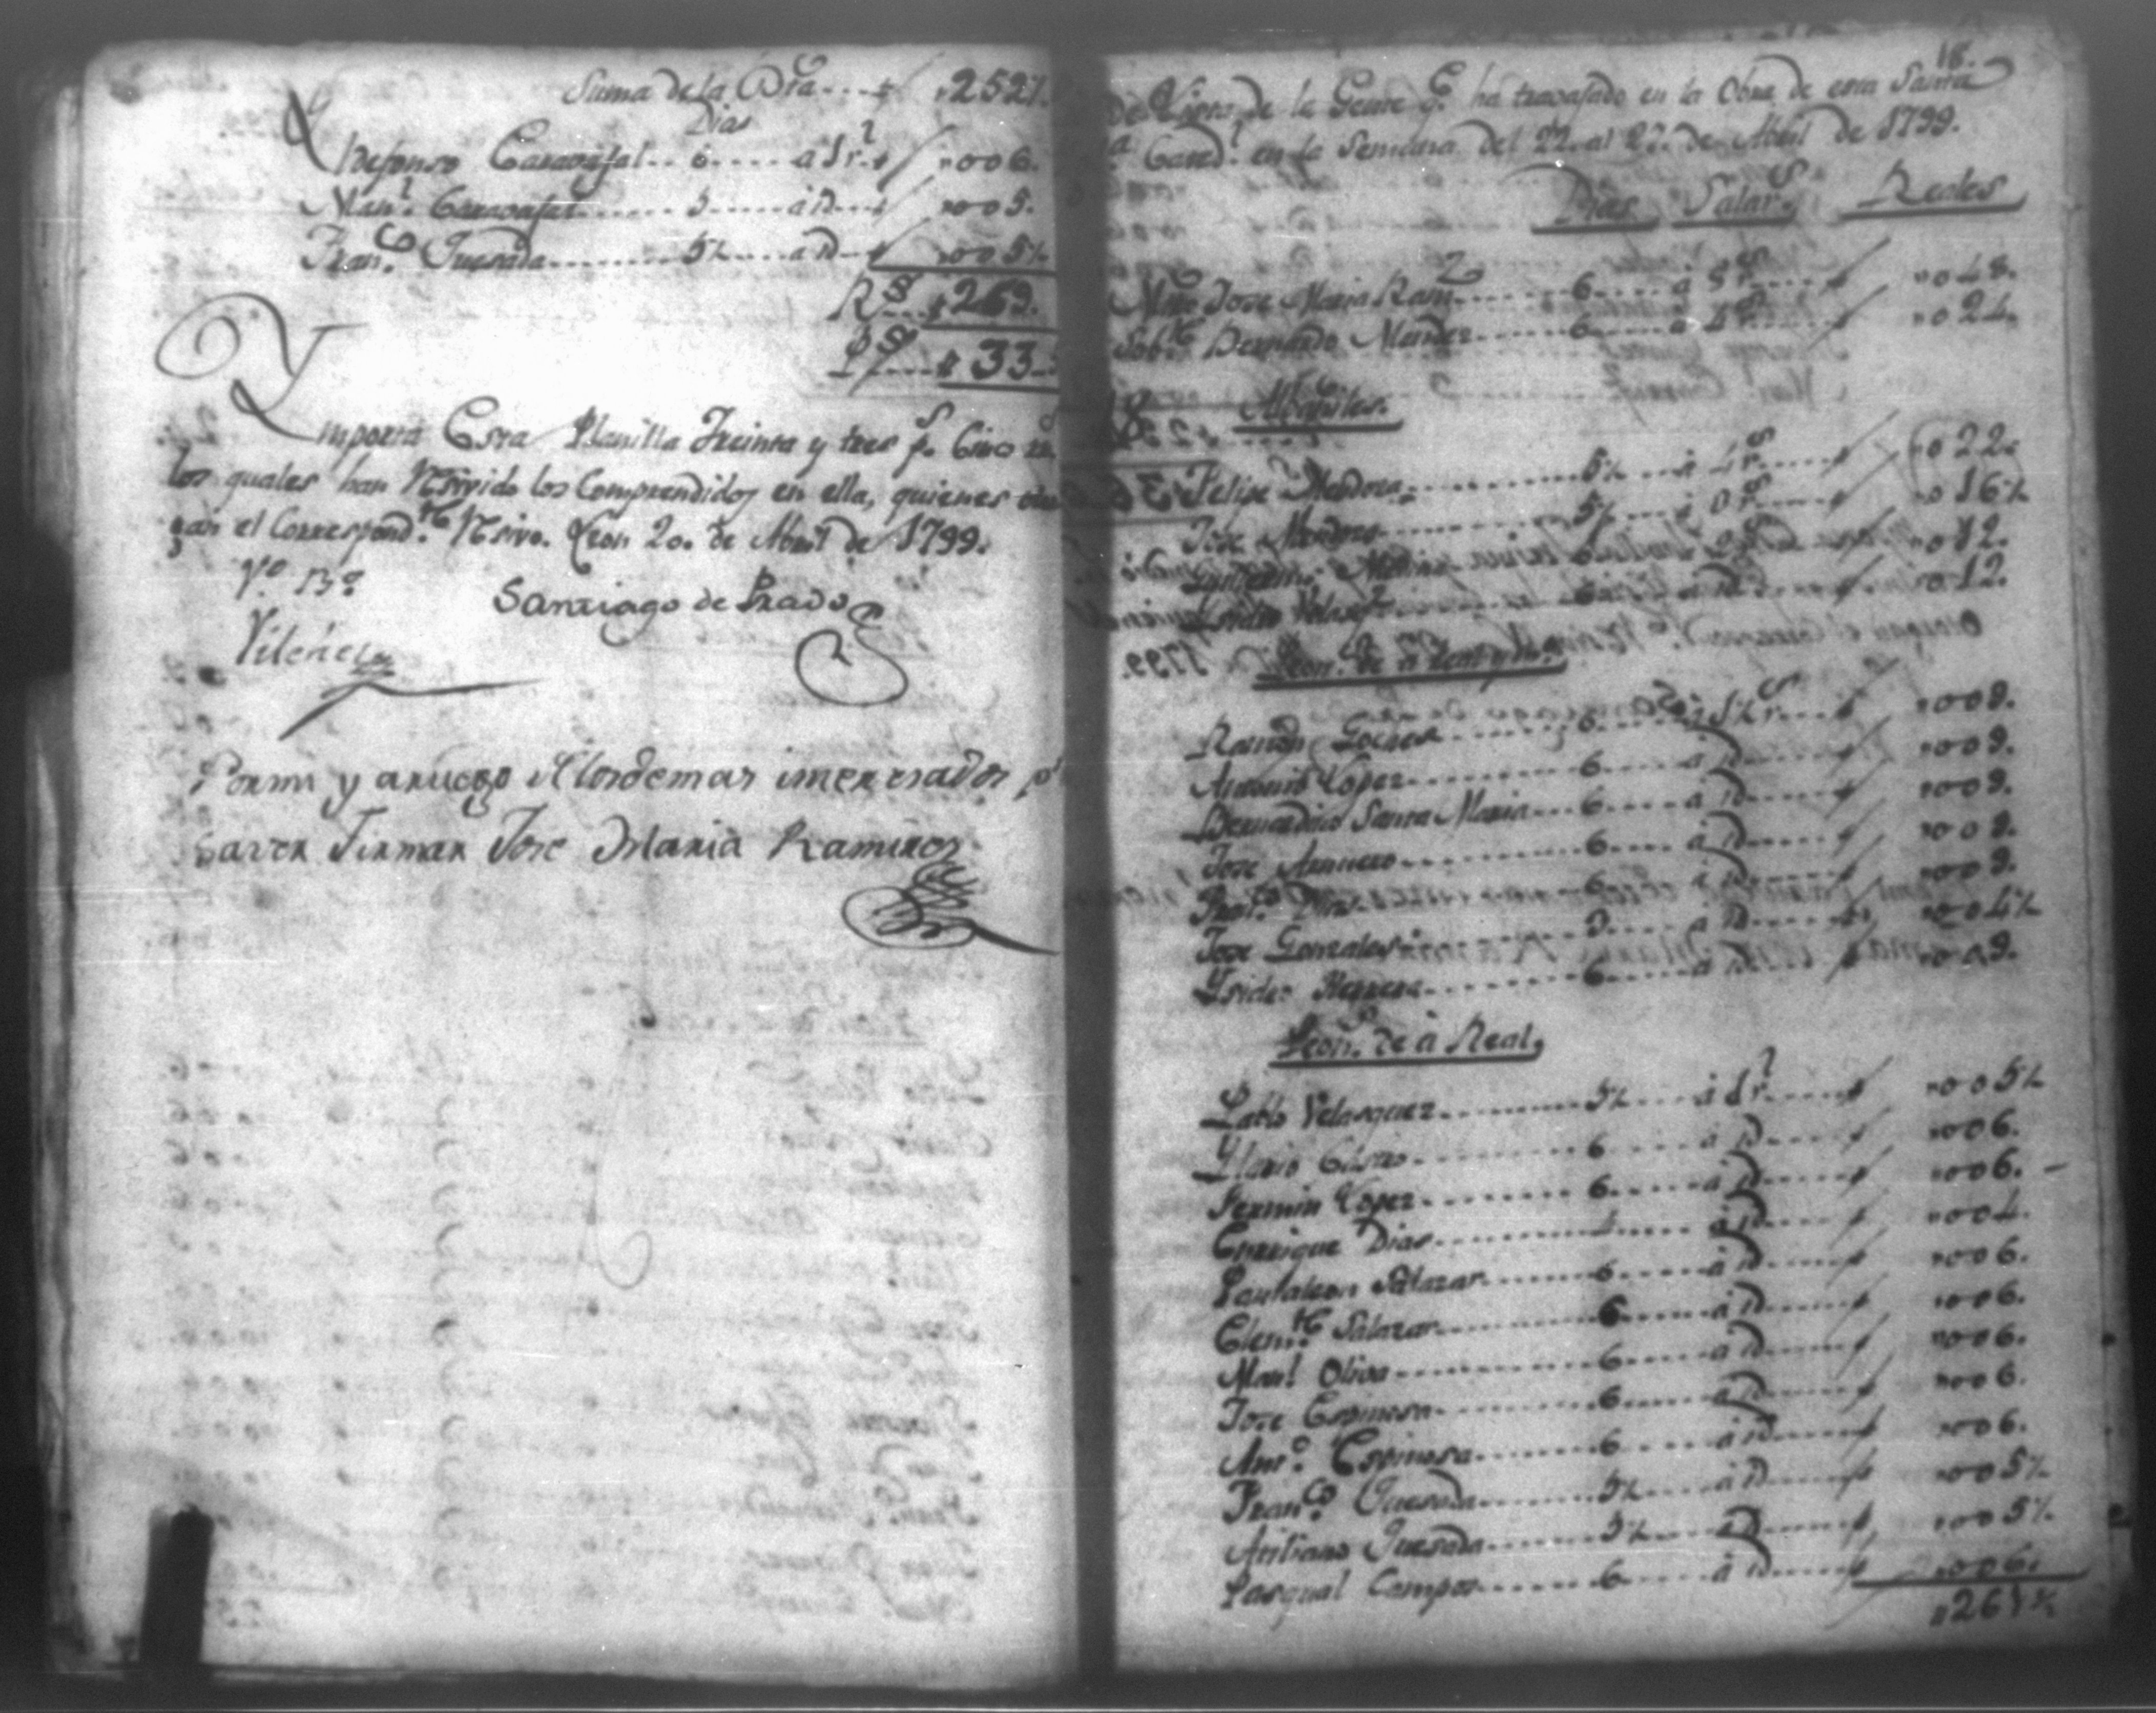 Suma de la Bta.... " 2527.
Dias
Ildefonso Caravajal.. 6..... a 1 r.l " " 006.
Man.l Caravajal...... 5...... a id.. " " 005.
Fran.co Quesada...... 5½.... a id.. " " 005½
R.s.. " 269.
P.s.... " 33..
Ymporta Esta Planilla Treinta y tres p.s Cinco r.s
los quales han Resivido los Comprendidos en ella, quienes
gan el Correspond.te Resivo. Leon 20. de Abril de 1799.
V.o B.o
Santiago de Prado
Vilches
Pormi y aruego de losdemas interesados p.r
saver Firmar Jose Maria Ramires
18.
de la Gente q.e há travajado en la Obra de esta Santa
Cated.l en la Semana del 22. al 27. de Abril de 1799.
Dias Salar.s Reales
M.ro Jose Maria Ram.z........ 6...... á 8 r.s..... " " 048.
Sob.te Bernardo Mendez.... 6...... á 4 r.s..... " " 024.
Albañiles.
Felipe Mendoza............. 5½.... á 4 r.s..... " " 022.
Jose Mendoza............. 5½.... á 3 r.s..... " " 016½
6...... á 2 r.s..... " " 012.
Isidro Velasq.z........... 6...... á id..... " " 012.
Peon.s de á real y ½.
Ramon Gomes......... 6..... á 1½ r.s.... " " 009.
Antonio Lopez......... 6..... á id..... " " 009.
Bernardino Santa Maria... 6..... á id..... " " 009.
Jose........... 6..... á id..... " " 009.
Dias......... 6..... á id..... " " 009.
Jose Gonzales......... 3..... á id..... " " 004½
Ysidro Herrera......... 6..... á id..... " " 009.
Peon.s de á Real.
Pablo Velasquez......... 5½.... á 1 r.l..... " " 005½
Ylario........... 6..... á id..... " " 006.
Fermin Lopez......... 6..... á id..... " " 006. -
Enrrique Dias......... 4..... á id..... " " 004.
Pantaleon Salazar...... 6..... á id..... " " 006.
Clem.te Salazar......... 6..... á id..... " " 006.
Man.l Oliva........... 6..... á id..... " " 006.
Jose Espinosa......... 6..... á id..... " " 006.
Ant.o Espinosa......... 6..... á id..... " " 006.
Fran.co Quesada......... 5½.... á id..... " " 005½
Quesada......... 5½.... á id..... " " 005½
Pasqual Campos......... 6..... á id..... " " 006.
" 261½